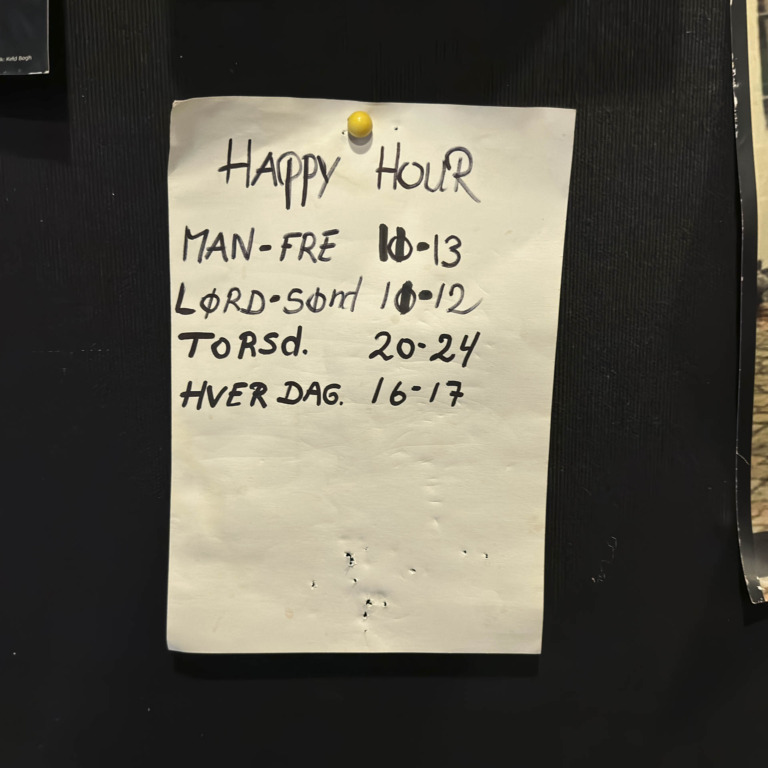 HAPPY HOUR
MAN-FRE 10-13
LØRD-SØnd 10-12
TORSd. 20-24
HVER DAG. 16-17